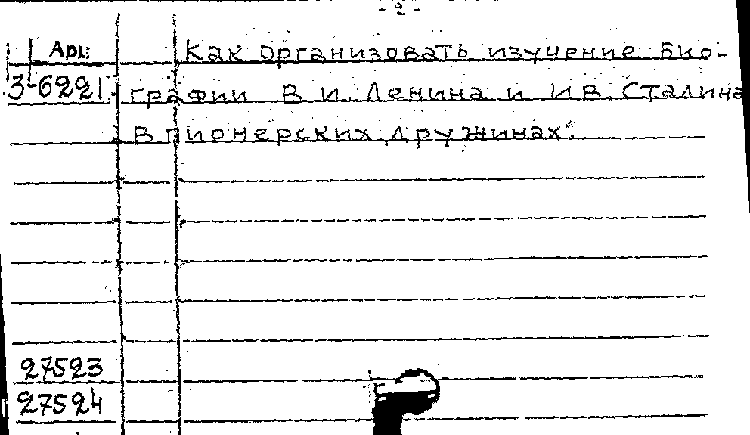 - 2 -
Как организовать изучение био-
3-6221 графии В И. Ленина и И.В. Сталина
в пионерских дружинах.
27523
27524